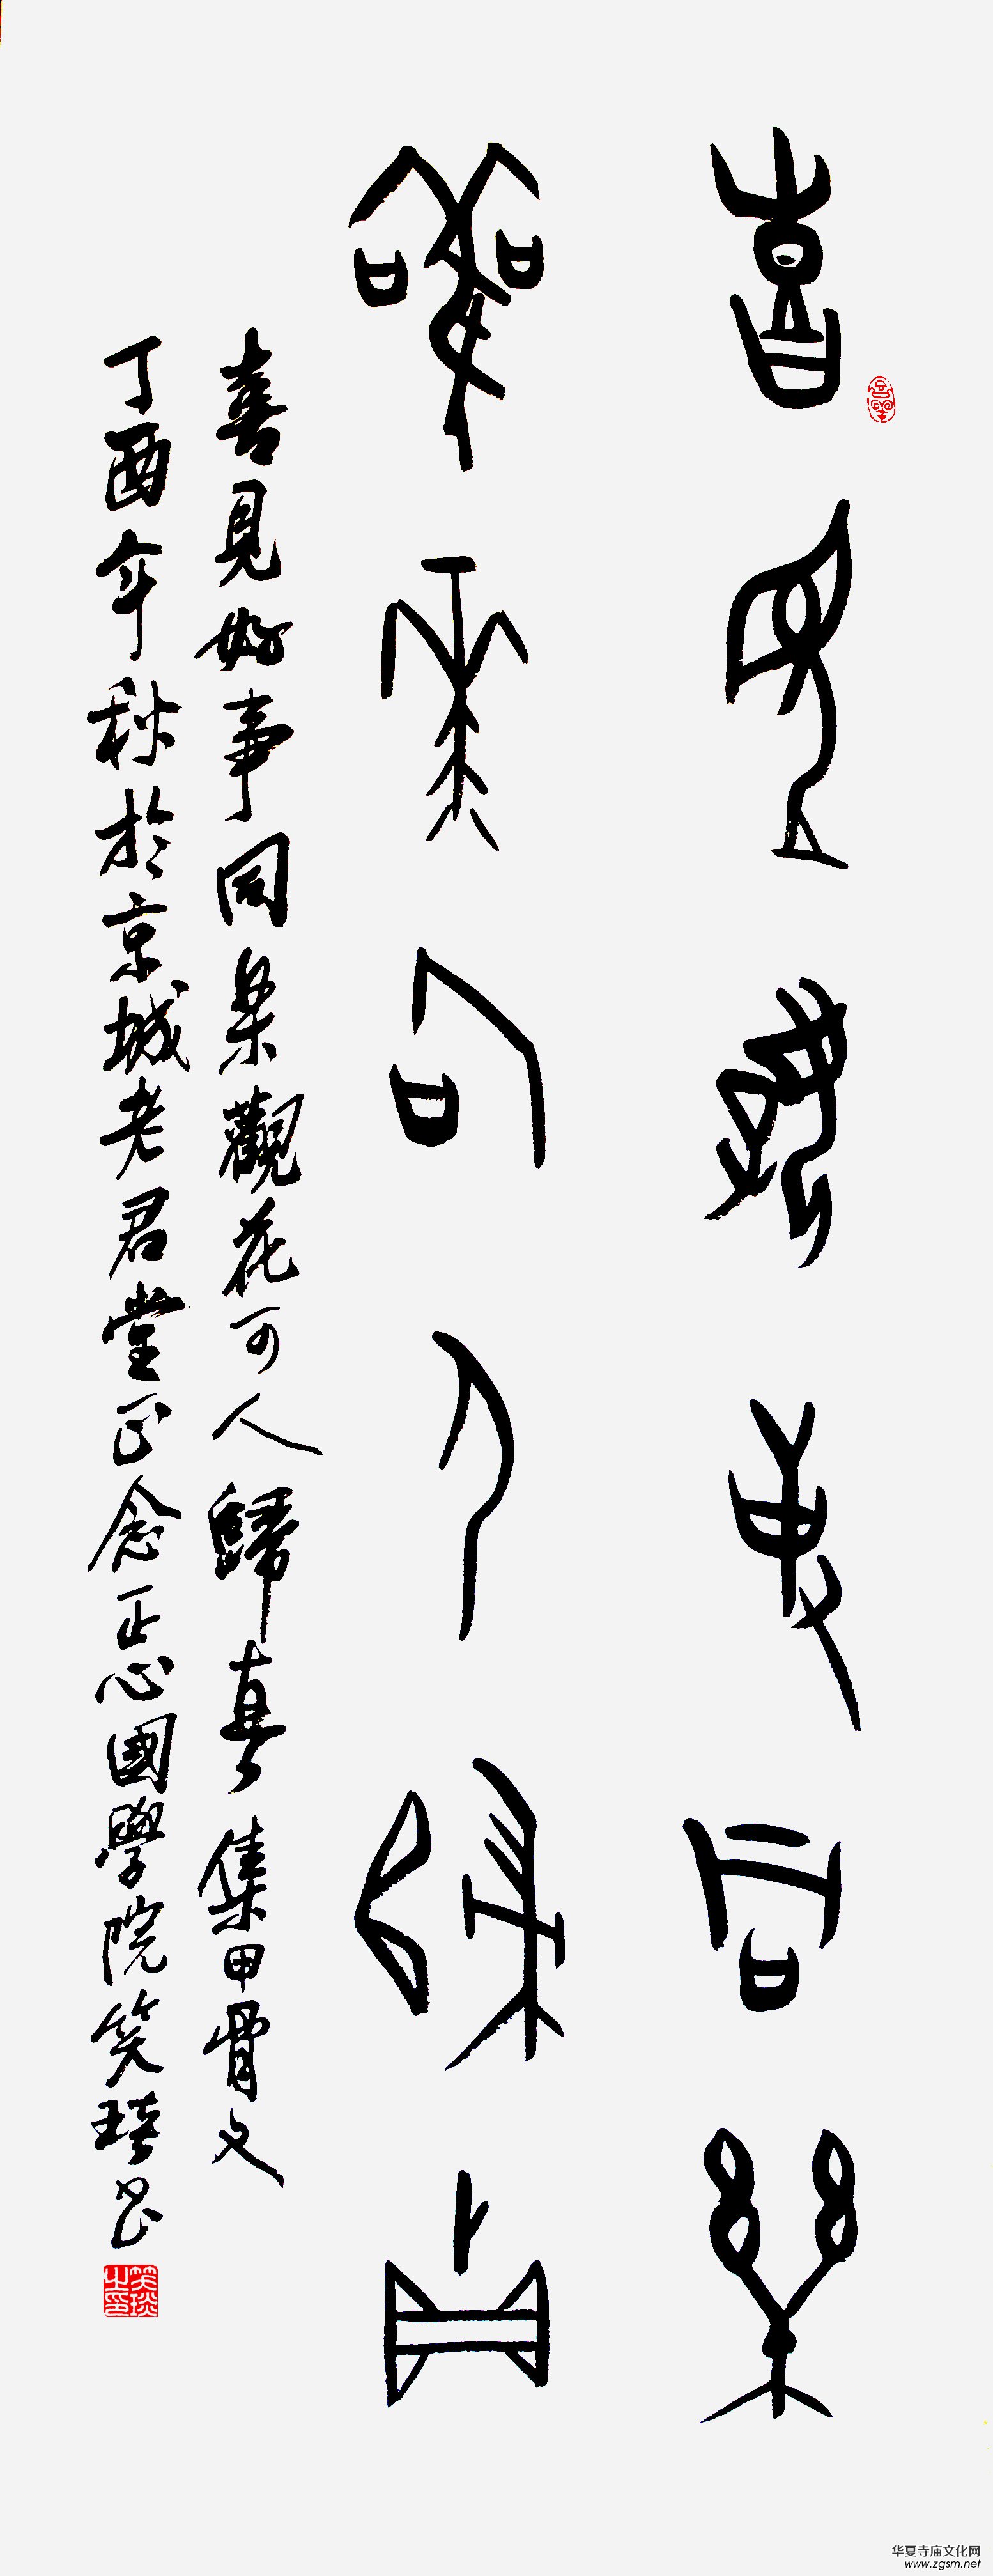 喜見好事同樂
觀花可人歸真
喜見好事同樂觀花可人歸真集甲骨文
丁酉年秋於京城老君堂正念正心國學院笑琰書
华夏寺庙文化网
www.zgsm.net